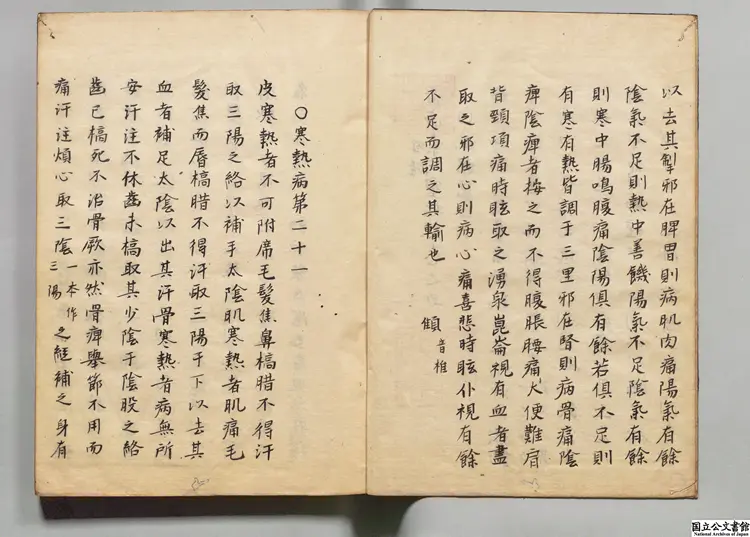 以去其掣邪在脾胃則病肌肉痛陽氣有餘
陰氣不足則熱中善饑陽氣不足陰氣有餘
則寒中腸鳴腹痛陰陽俱有餘若俱不足則
有寒有熱皆調于三里邪在腎則病骨痛陰
痺陰痺者按之而不得腹脹腰痛大便難肩
背頸項痛時眩取之湧泉崑崙視有血者盡
取之邪在心則病心痛喜悲時眩仆視有餘
不足而調之其輸也
音椎
○寒熱病第二十一
皮寒熱者不可附席毛髮焦鼻槁腊不得汗
取三陽之絡以補手太陰肌寒熱者肌痛毛
髮焦而唇槁腊不得汗取三陽于下以去其
血者補足太陰以出其汗骨寒熱者病無所
安汗注不休齒未槁取其少陰于陰股之絡
齒已槁死不治骨厥亦然骨痺舉節不用而
痛汗注煩心取三陰一本作三陽之經補之身有
国立公文書館
National Archives of Japan